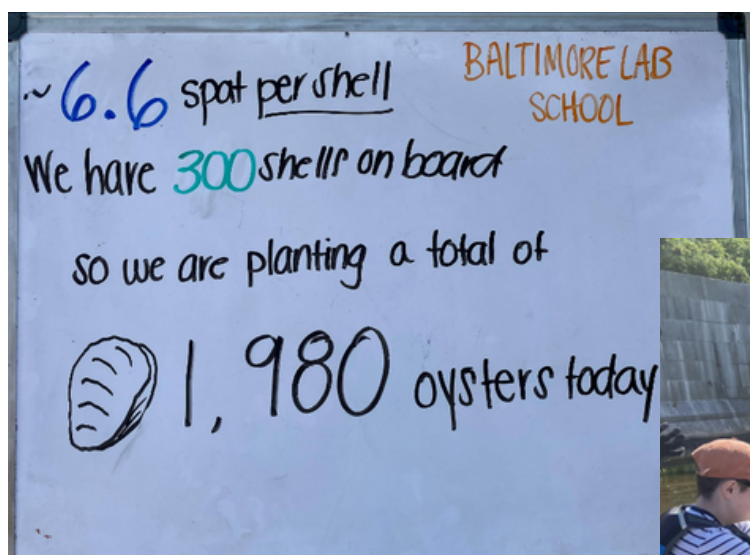 ~6.6 spat per shell
BALTIMORE LAB
SCHOOL
We have 300 shells on board
so we are planting a total of
1,980 oysters today